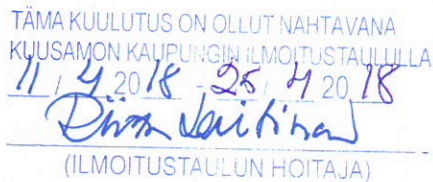 TÄMÄ KUULUTUS ON OLLUT NÄHTÄVÄNÄ
KUUSAMON KAUPUNGIN ILMOITUSTAULULLA
11 / 4 20 18 - 25 / 4 20 18
(ILMOITUSTAULUN HOITAJA)